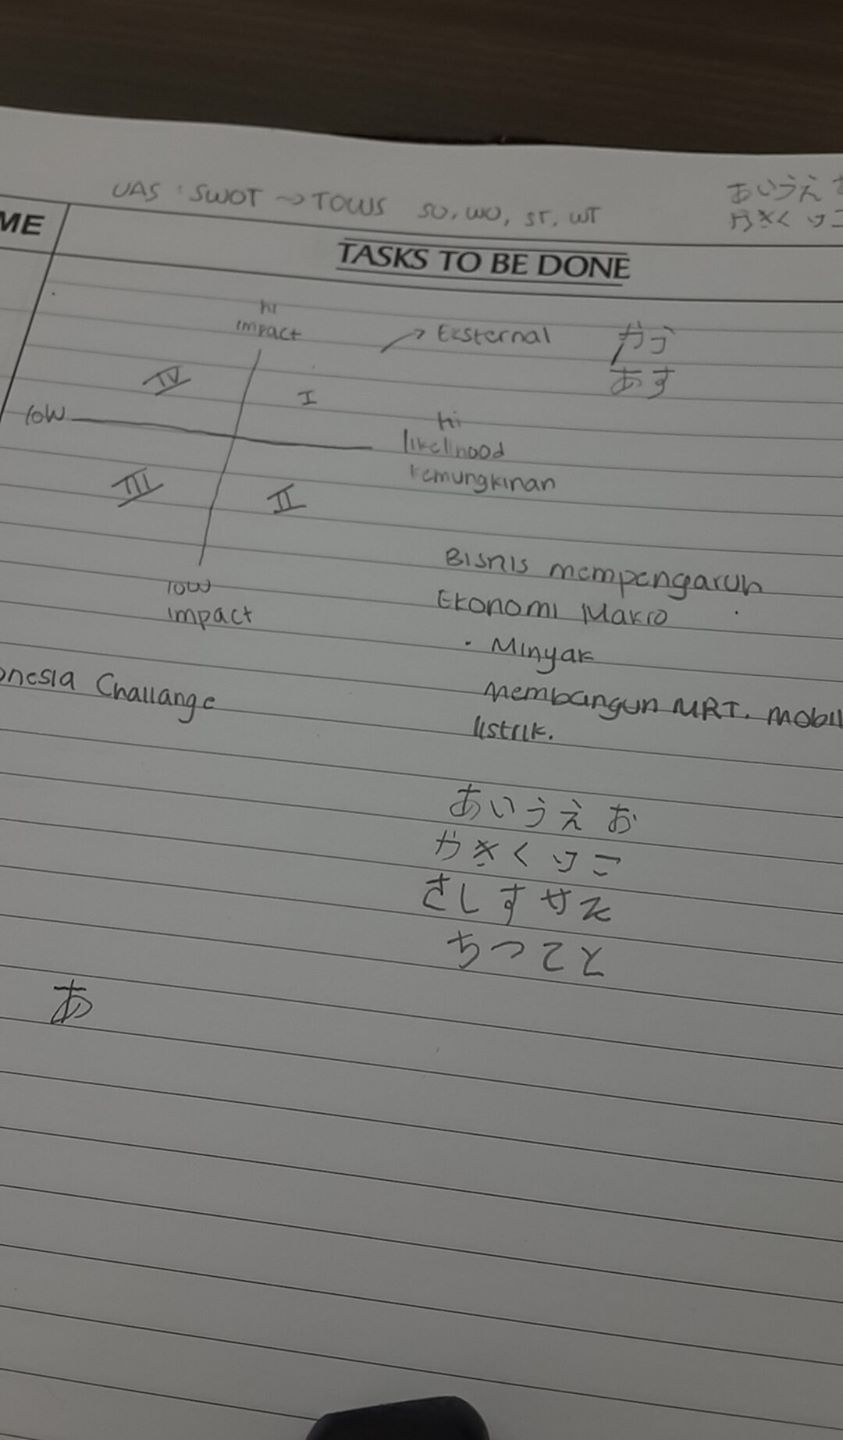 UAS : SWOT → TOWS SO, WO, ST, WT
あいうえ
かきくけこ
ME
TASKS TO BE DONE
hi
impact
Eksternal
あす
IV
I
low
hi
likelihood
kemungkinan
III
II
low
impact
Bisnis mempengaruhi
Ekonomi Makro
• Minyak
onesia Challange
Membangun MRT. mobil
listrik.
あいうえお
かきくけこ
さしすせそ
ちつてと
あ